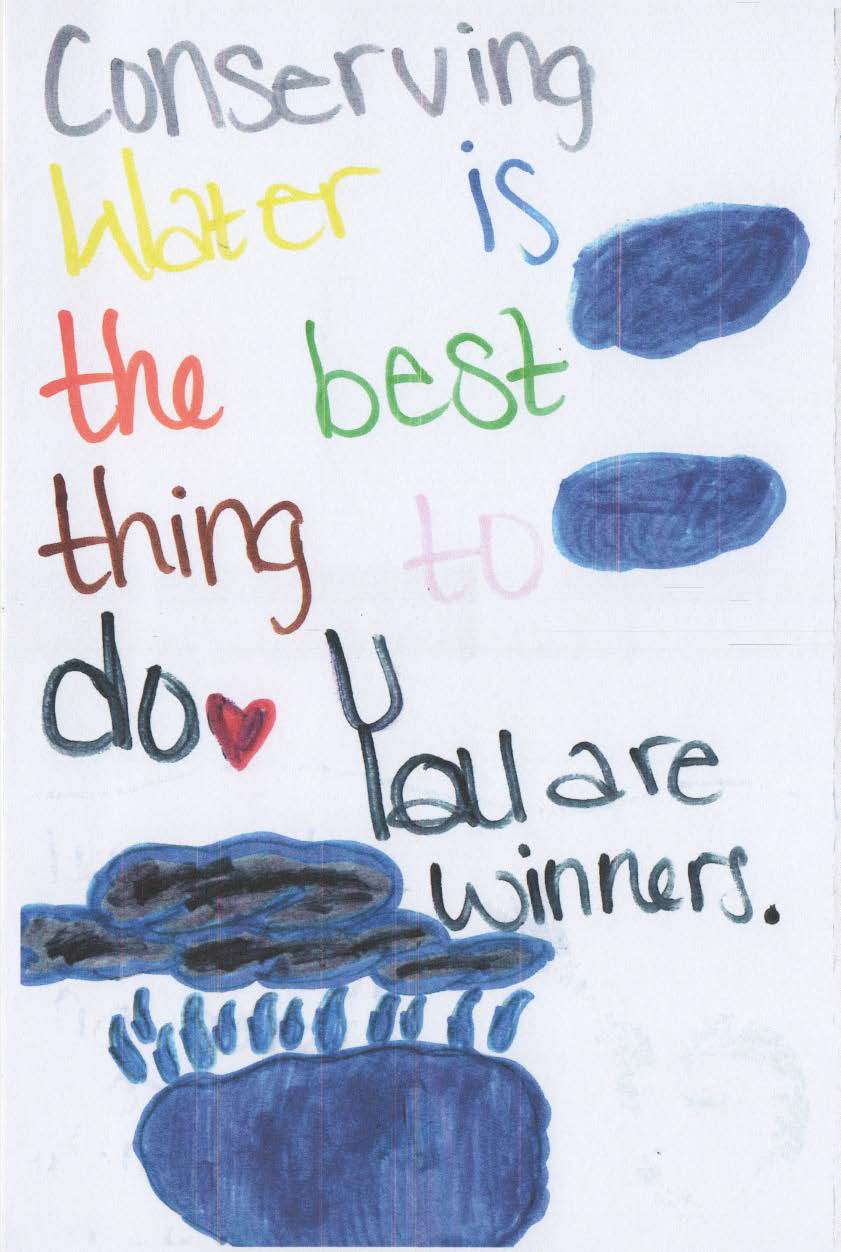 Conserving
Water is
the best
thing to
do You are
winners.